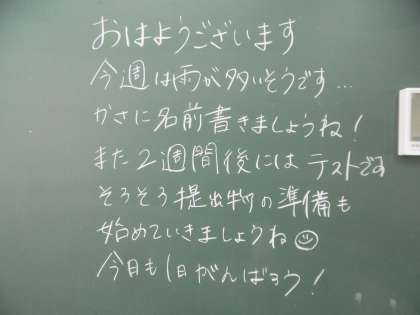 おはようございます
今週は雨が多いそうです…
かさに名前書きましょうね!
また2週間後にはテストです
そろそろ提出物の準備も
始めていきましょうね☺
今日も1日がんばろう!